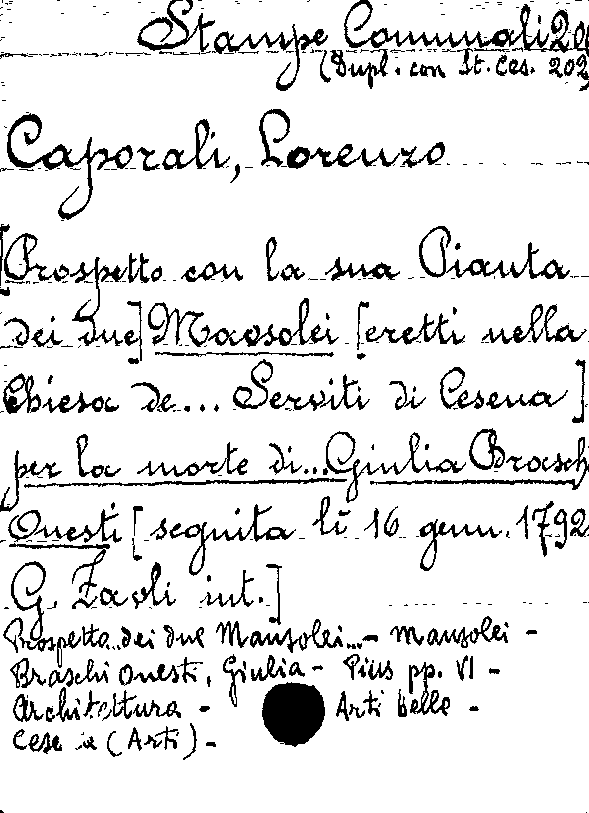 Stampe Comunali 20
(Dupl. con St. Ces. 202
Caporali, Lorenzo
[Prospetto con la sua Pianta
dei due] Mavsolei [eretti nella
Chiesa de... Serviti di Cesena]
per la morte di... Giulia Brasch
Onesti [seguita lì 16 genn. 1792
G. Zavli int.]
Prospetto.. dei due Mausolei... - Mausolei -
Braschi Onesti, Giulia - Pius pp. VI -
Architettura - Arti belle -
(Arti) -